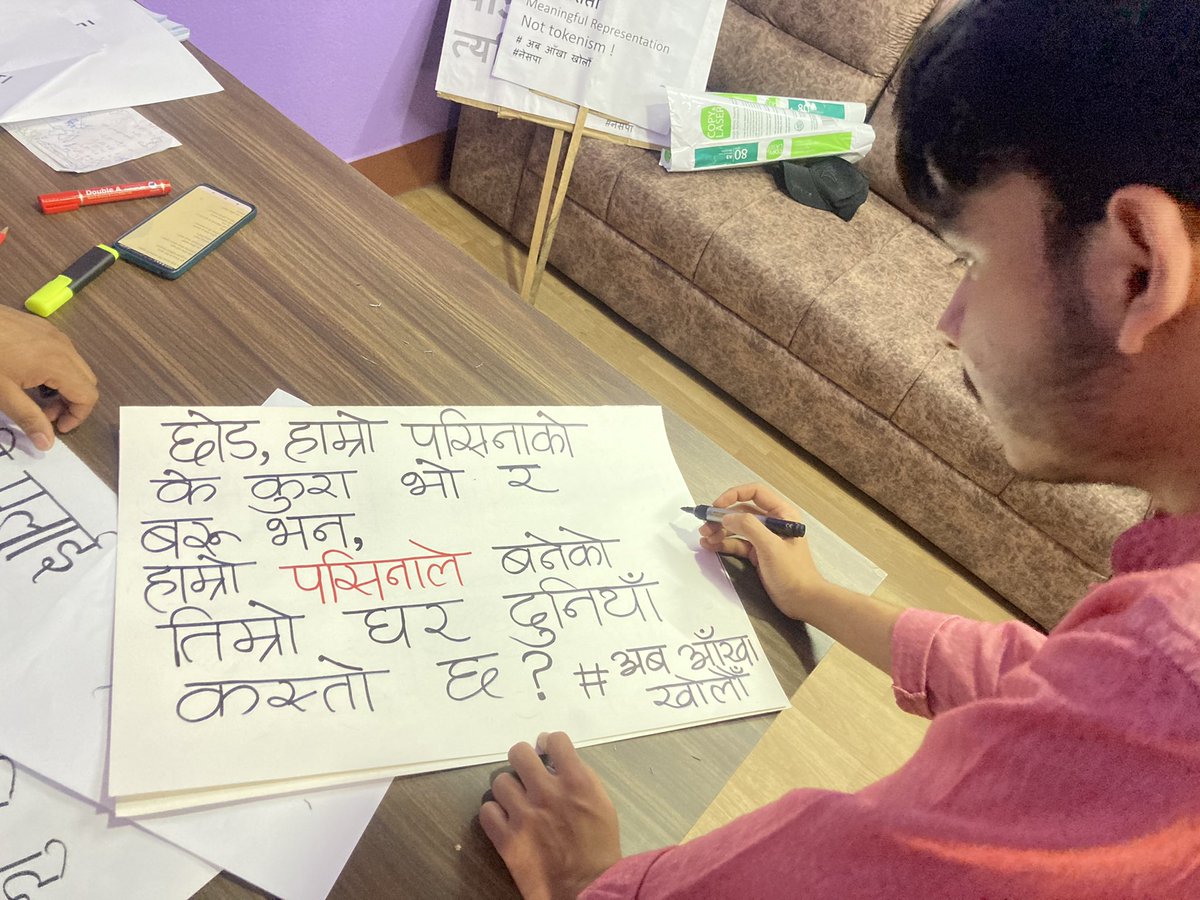 Meaningful Representation
Not tokenism !
# अब आँखा खोलौँ
#नेसपा
#नेसपा
COPY LASER
80
80
Double A
छोड, हाम्रो पसिनाको
के कुरा भो र
बरू भन,
हाम्रो पसिनाले बनेको
तिम्रो घर दुनियाँ
कस्तो छ ?
#अब आँखा
खोलौँ